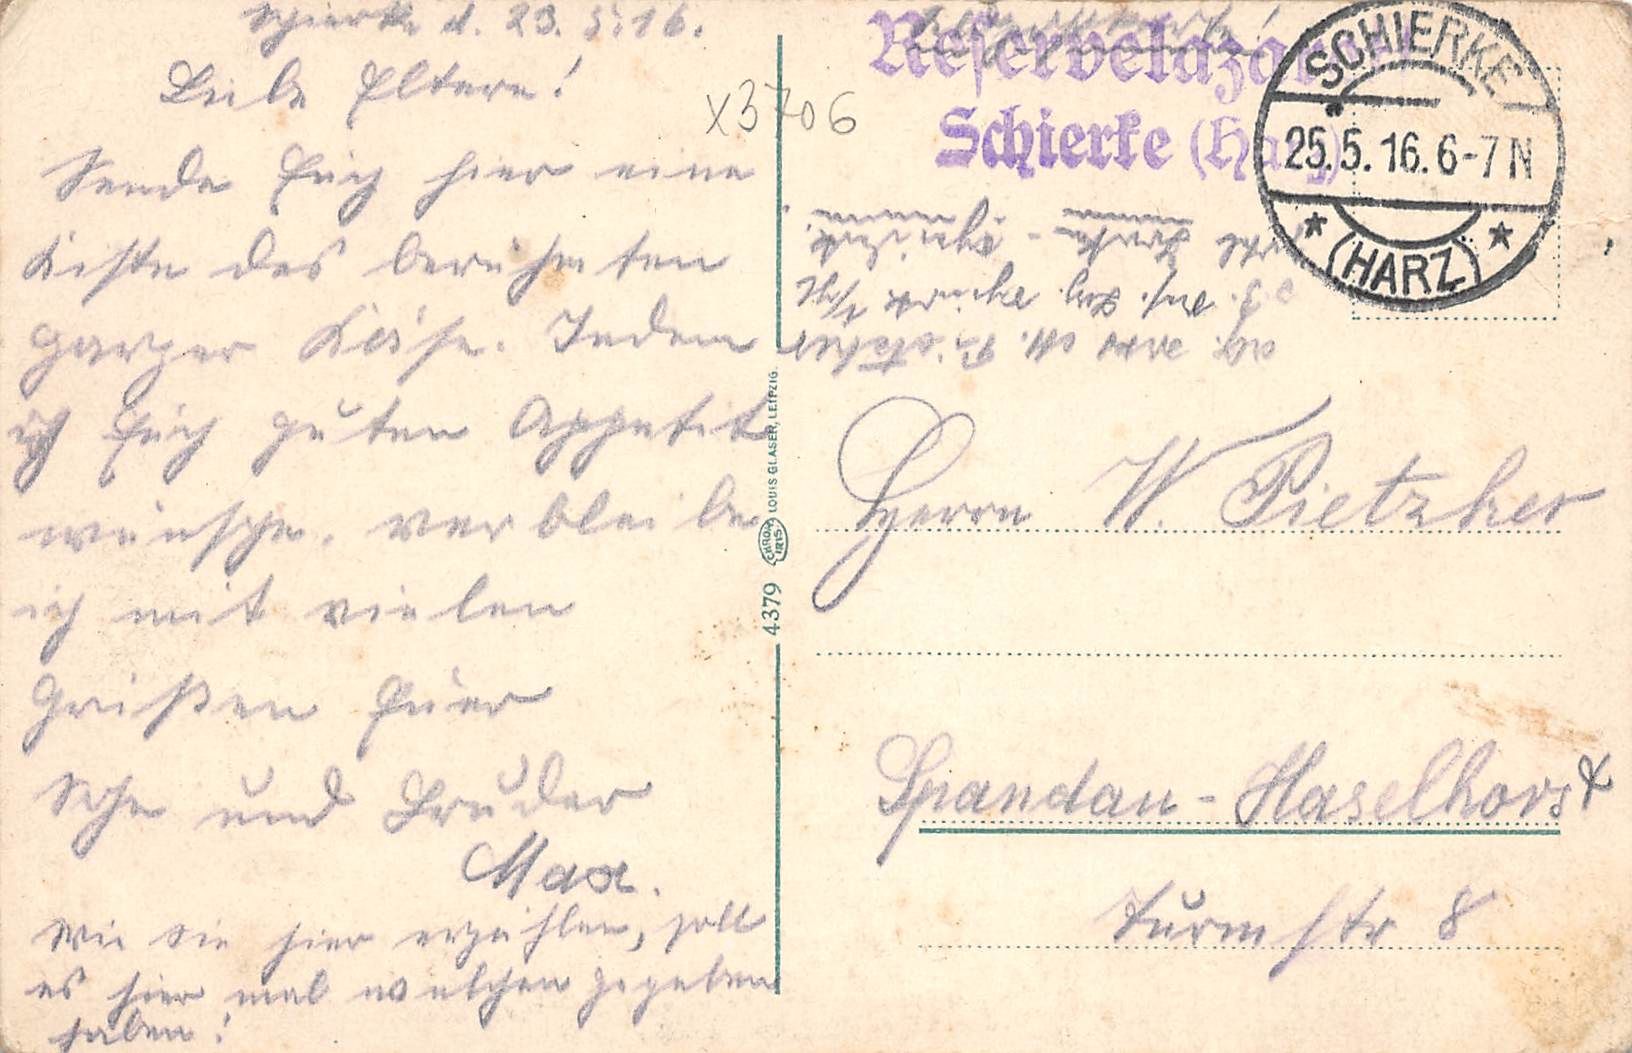 Schierke d. 23.5.16.
Liebe Eltern!
Sende Euch hier eine
Kiste des berühmten
Harzer Käse. Indem
ich Euch guten Appetit
wünsche, verbleibe
ich mit vielen
Grüßen Euer
Sohn und Bruder
Max.
Wie sie hier erzählen, soll
es hier mal welchen gegeben
haben!
X3706
Reservelazarett
Schierke (Harz)
SCHIERKE
25.5.16.6-7N
(HARZ)
Herrn W. Pietzker
Spandau-Haselhorst
Turmstr 8
4379
CHROM
IRIS
LOUIS GLASER, LEIPZIG.